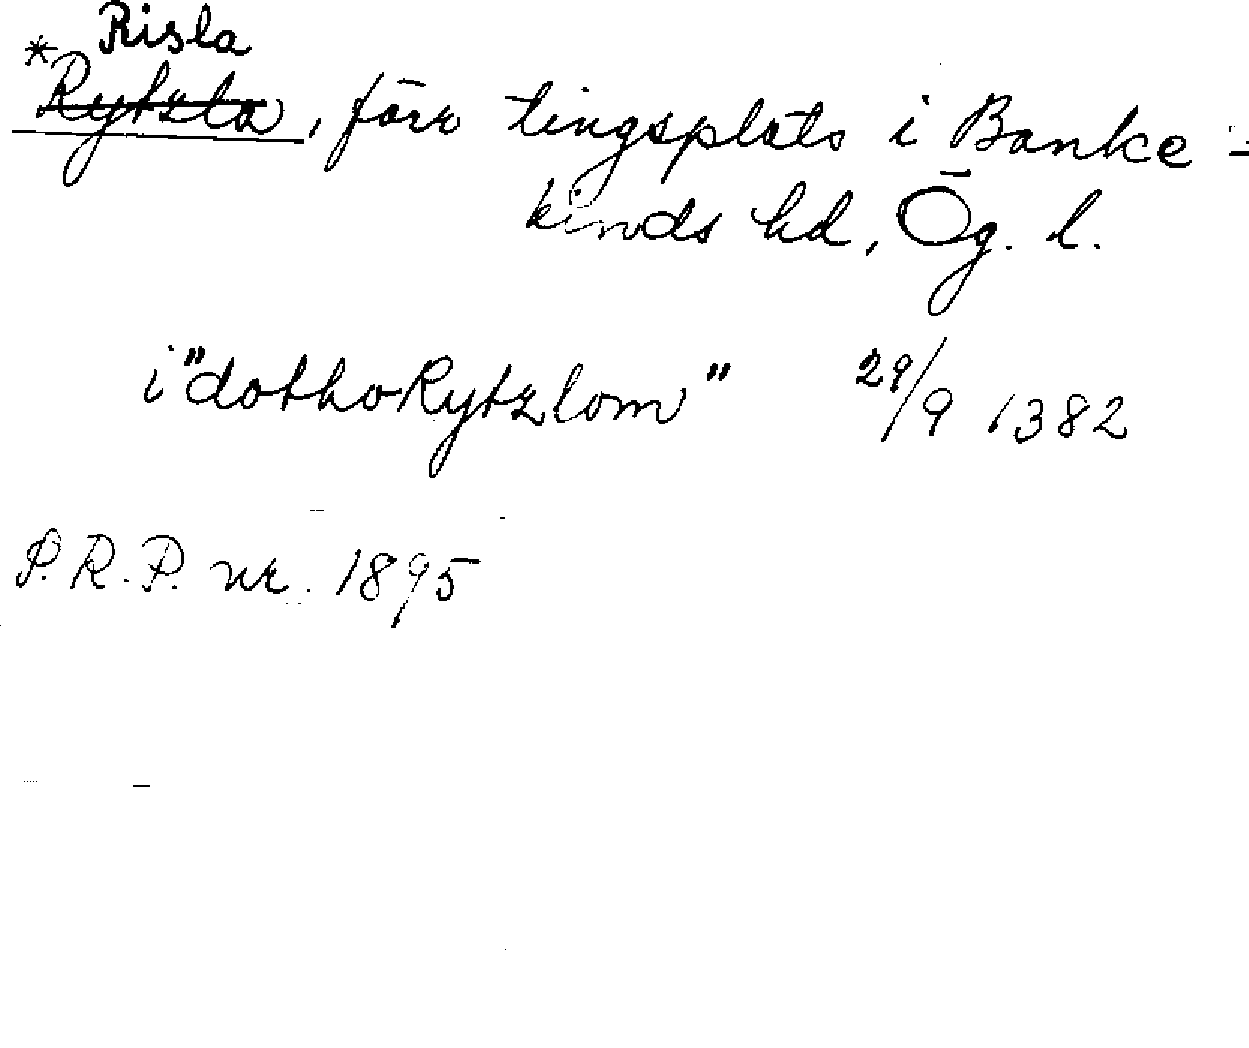 Risla
*Rytzla, förr tingsplats i Banke-
kinds hd, Ög. l.
i "dothoRytzlom" 29/9 1382
P.R.P. nr. 1895